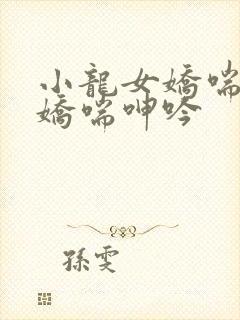 小龍女嬌喘
嬌喘呻吟
孫雯